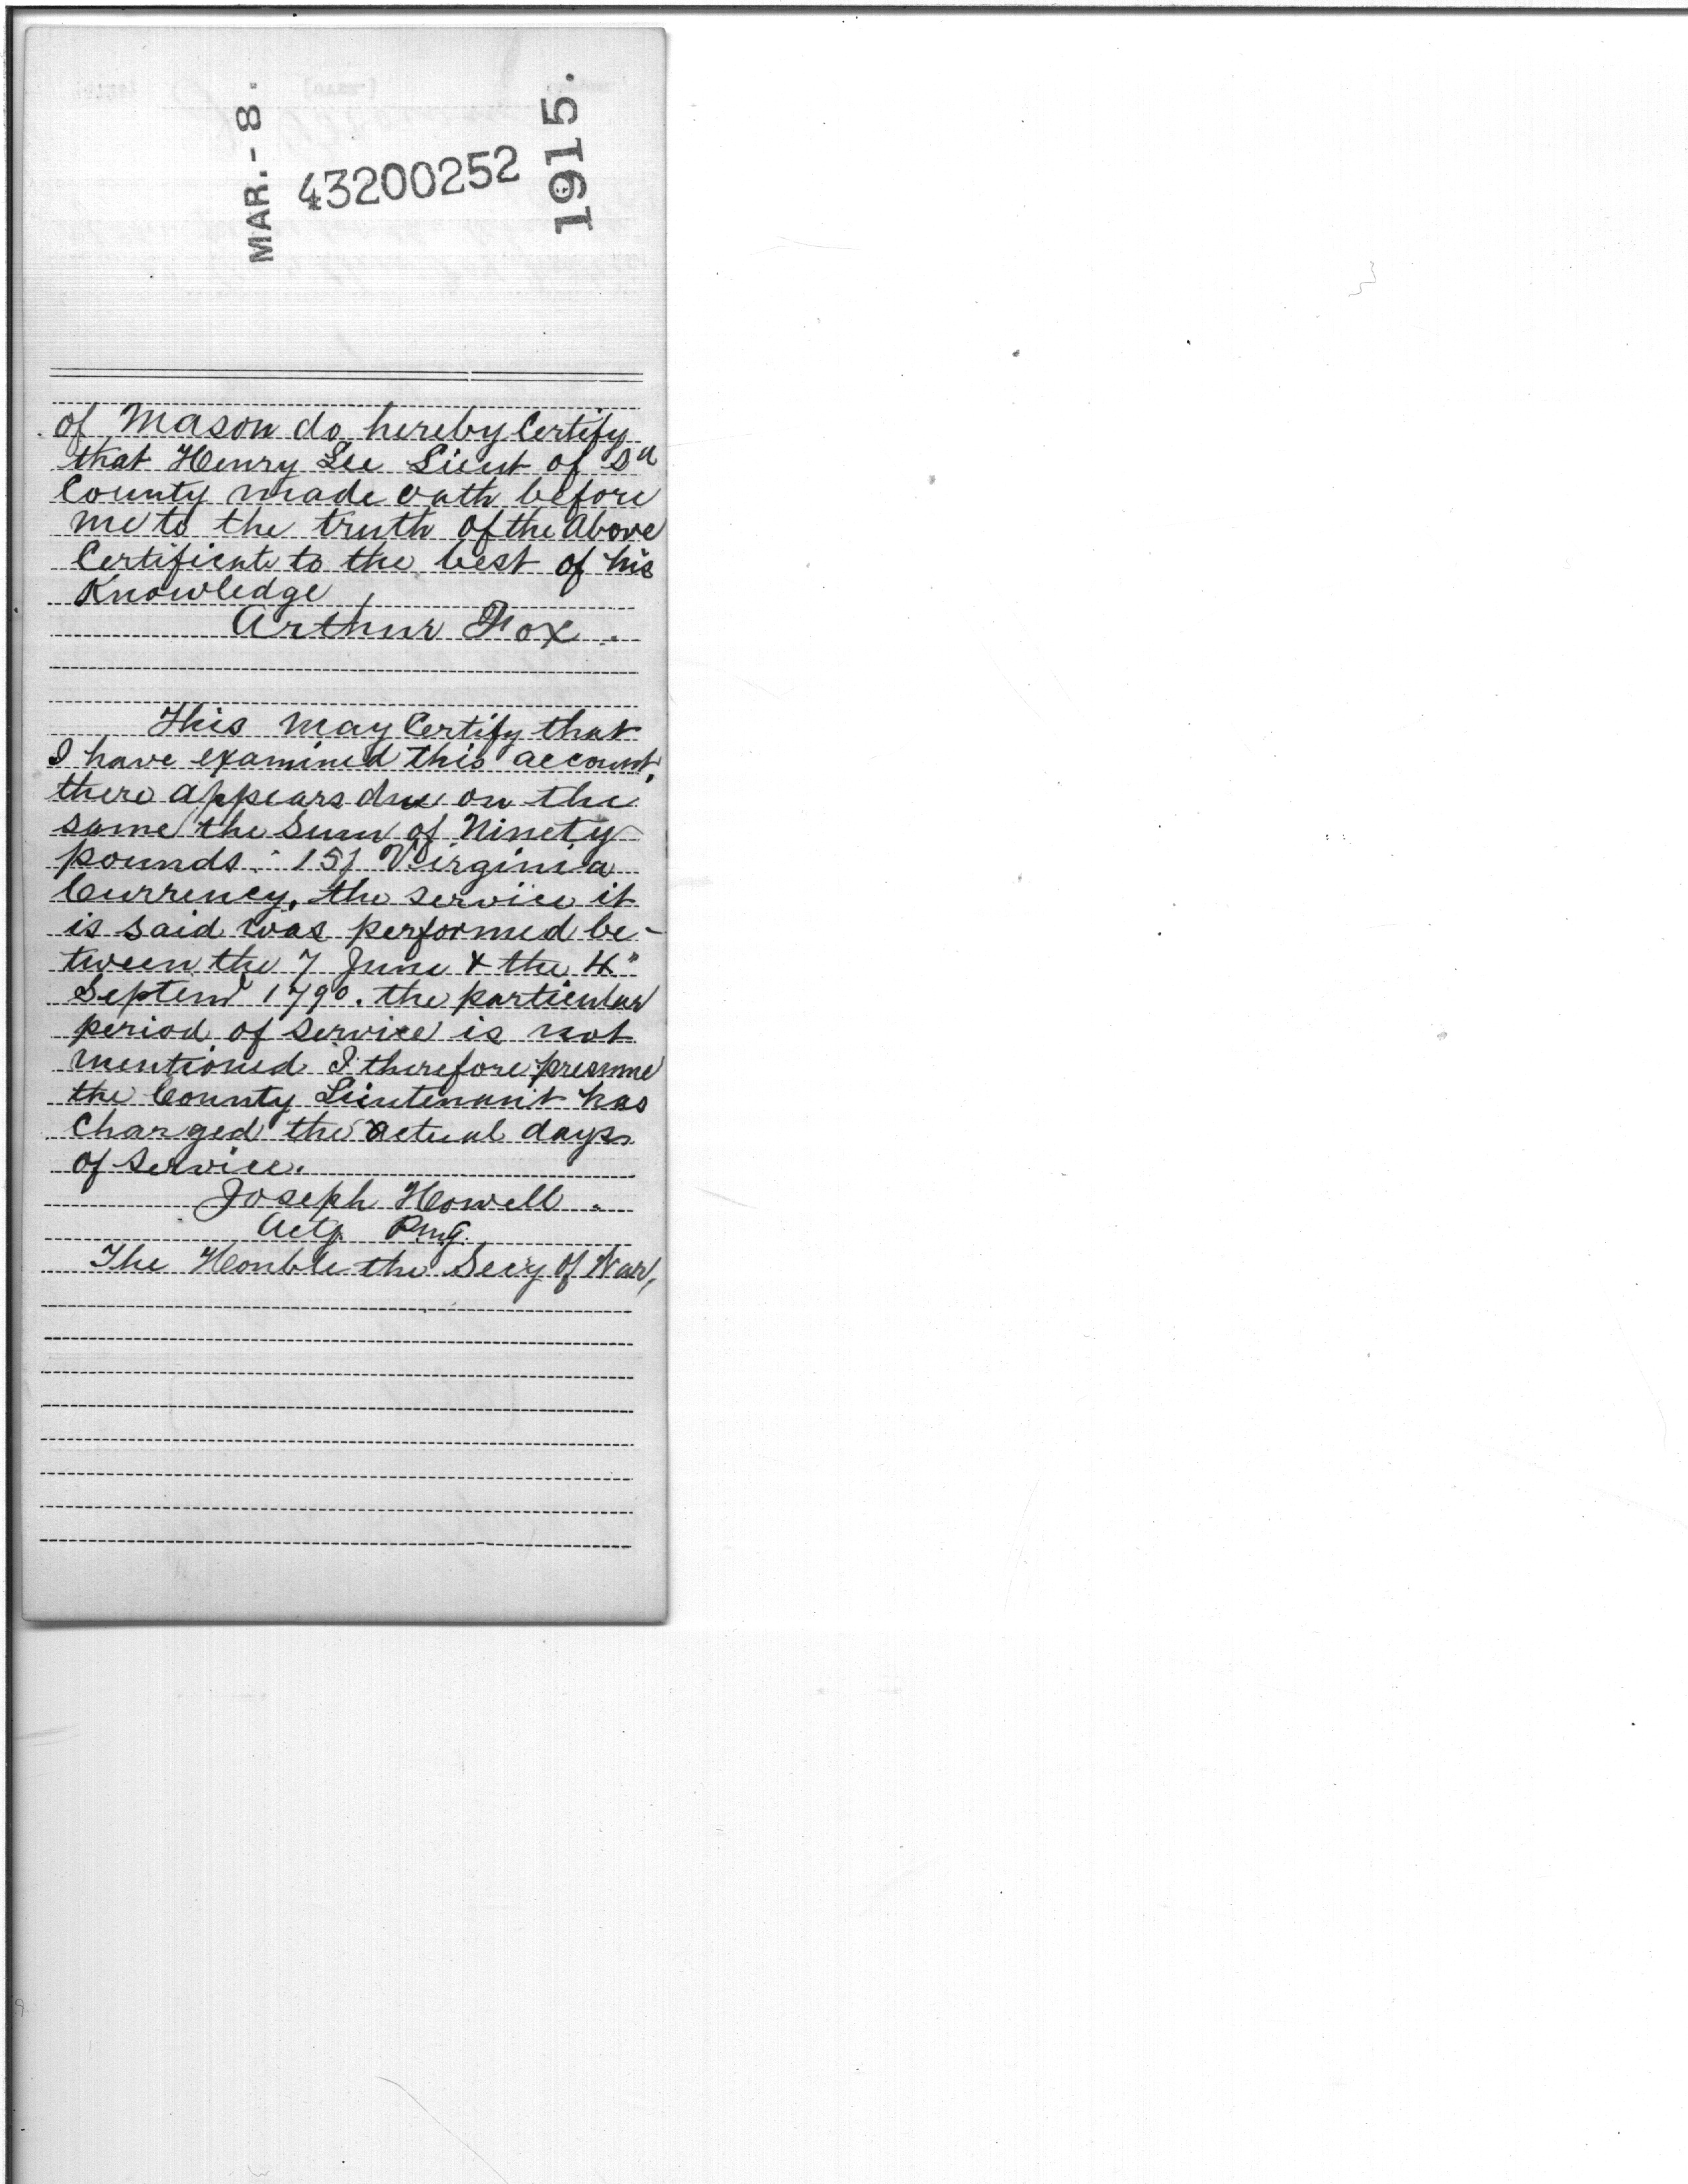 MAR. - 8. 1915.
43200252
of Mason do hereby Certify
that Henry Lee Lieut of Sd
County made oath before
me to the truth of the above
Certificate to the best of his
Knowledge
Arthur Fox.
This may Certify that
I have examined this account,
there appears due on the
same the Sum of Ninety
pounds. 15/ Virginia
Currency, the service it
is said was performed be-
tween the 7 June & the 4"
Septemr 1790. the particular
period of service is not
mentioned I therefore presume
the County Lieutenant has
Charged the actual days
of service.
Joseph Howell.
Actg. P.M.G.
The Honble the Secy of War,